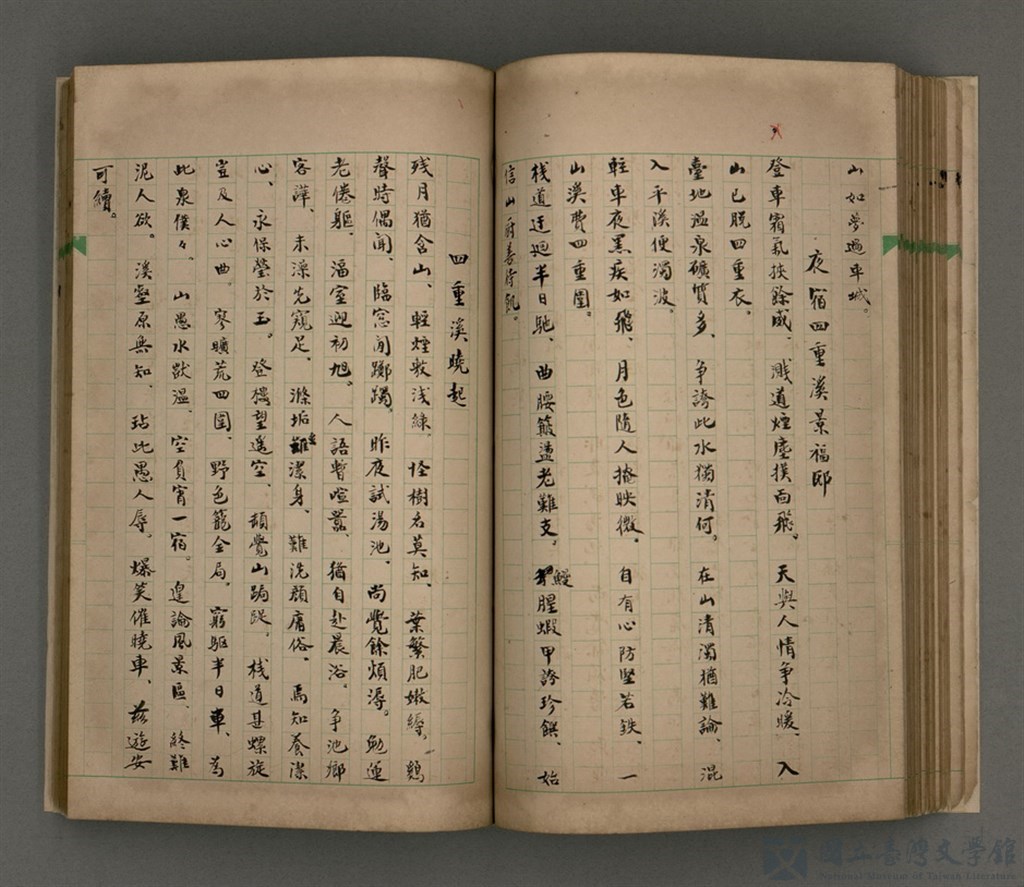 山如夢過車城。
夜宿四重溪景福邸
登車霜氣挾餘威、濺道煙塵撲面飛。天與人情爭冷暖、入
山已脫四重衣。
臺地溫泉礦質多、爭誇此水獨清何。在山清濁猶難論、混
入平溪便濁波。
輕車夜黑疾如飛、月色隨人掩映微。自有心防堅若鉄、一
山溪費四重圍。
栈道迂迴半日馳、曲腰簸盪老難支。鰻腥蝦甲誇珍饌、始
信山廚善侍飢。
四重溪曉起
残月猶含山、輕煙敷浅綠、怪樹名莫知、葉繁肥嫩縟。鷄
聲時偶聞、臨窓聞躑躅、昨夜試湯池、尚覺餘煩溽。勉運
老倦軀、溫室迎初旭。人語暫喧囂、猶自赴晨浴。争池鄉
客譁、未澡先窺足、滌垢難潔身、難洗顏庸俗、焉知養潔
心、永保瑩於玉。登樓望遙空、頡覺山跼促、栈道甚螺旋
豈及人心曲、寥曠荒四圍、野色籠全局、窮駆半日車、為
此泉僕々、山愚水獣溫、空負宵一宿。遑論風景區、終難
泥人欲。溪壑原無知、玷此愚人辱。爆笑催曉車、兹遊安
可續。
國立臺灣文學館
National Museum of Taiwan Literature